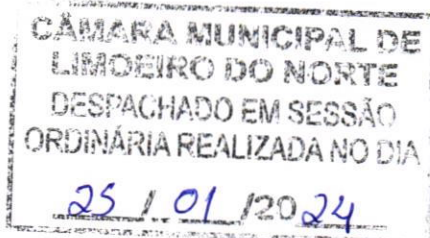 CÂMARA MUNICIPAL DE
LIMOEIRO DO NORTE
DESPACHADO EM SESSÃO
ORDINÁRIA REALIZADA NO DIA
25 / 01 /2024